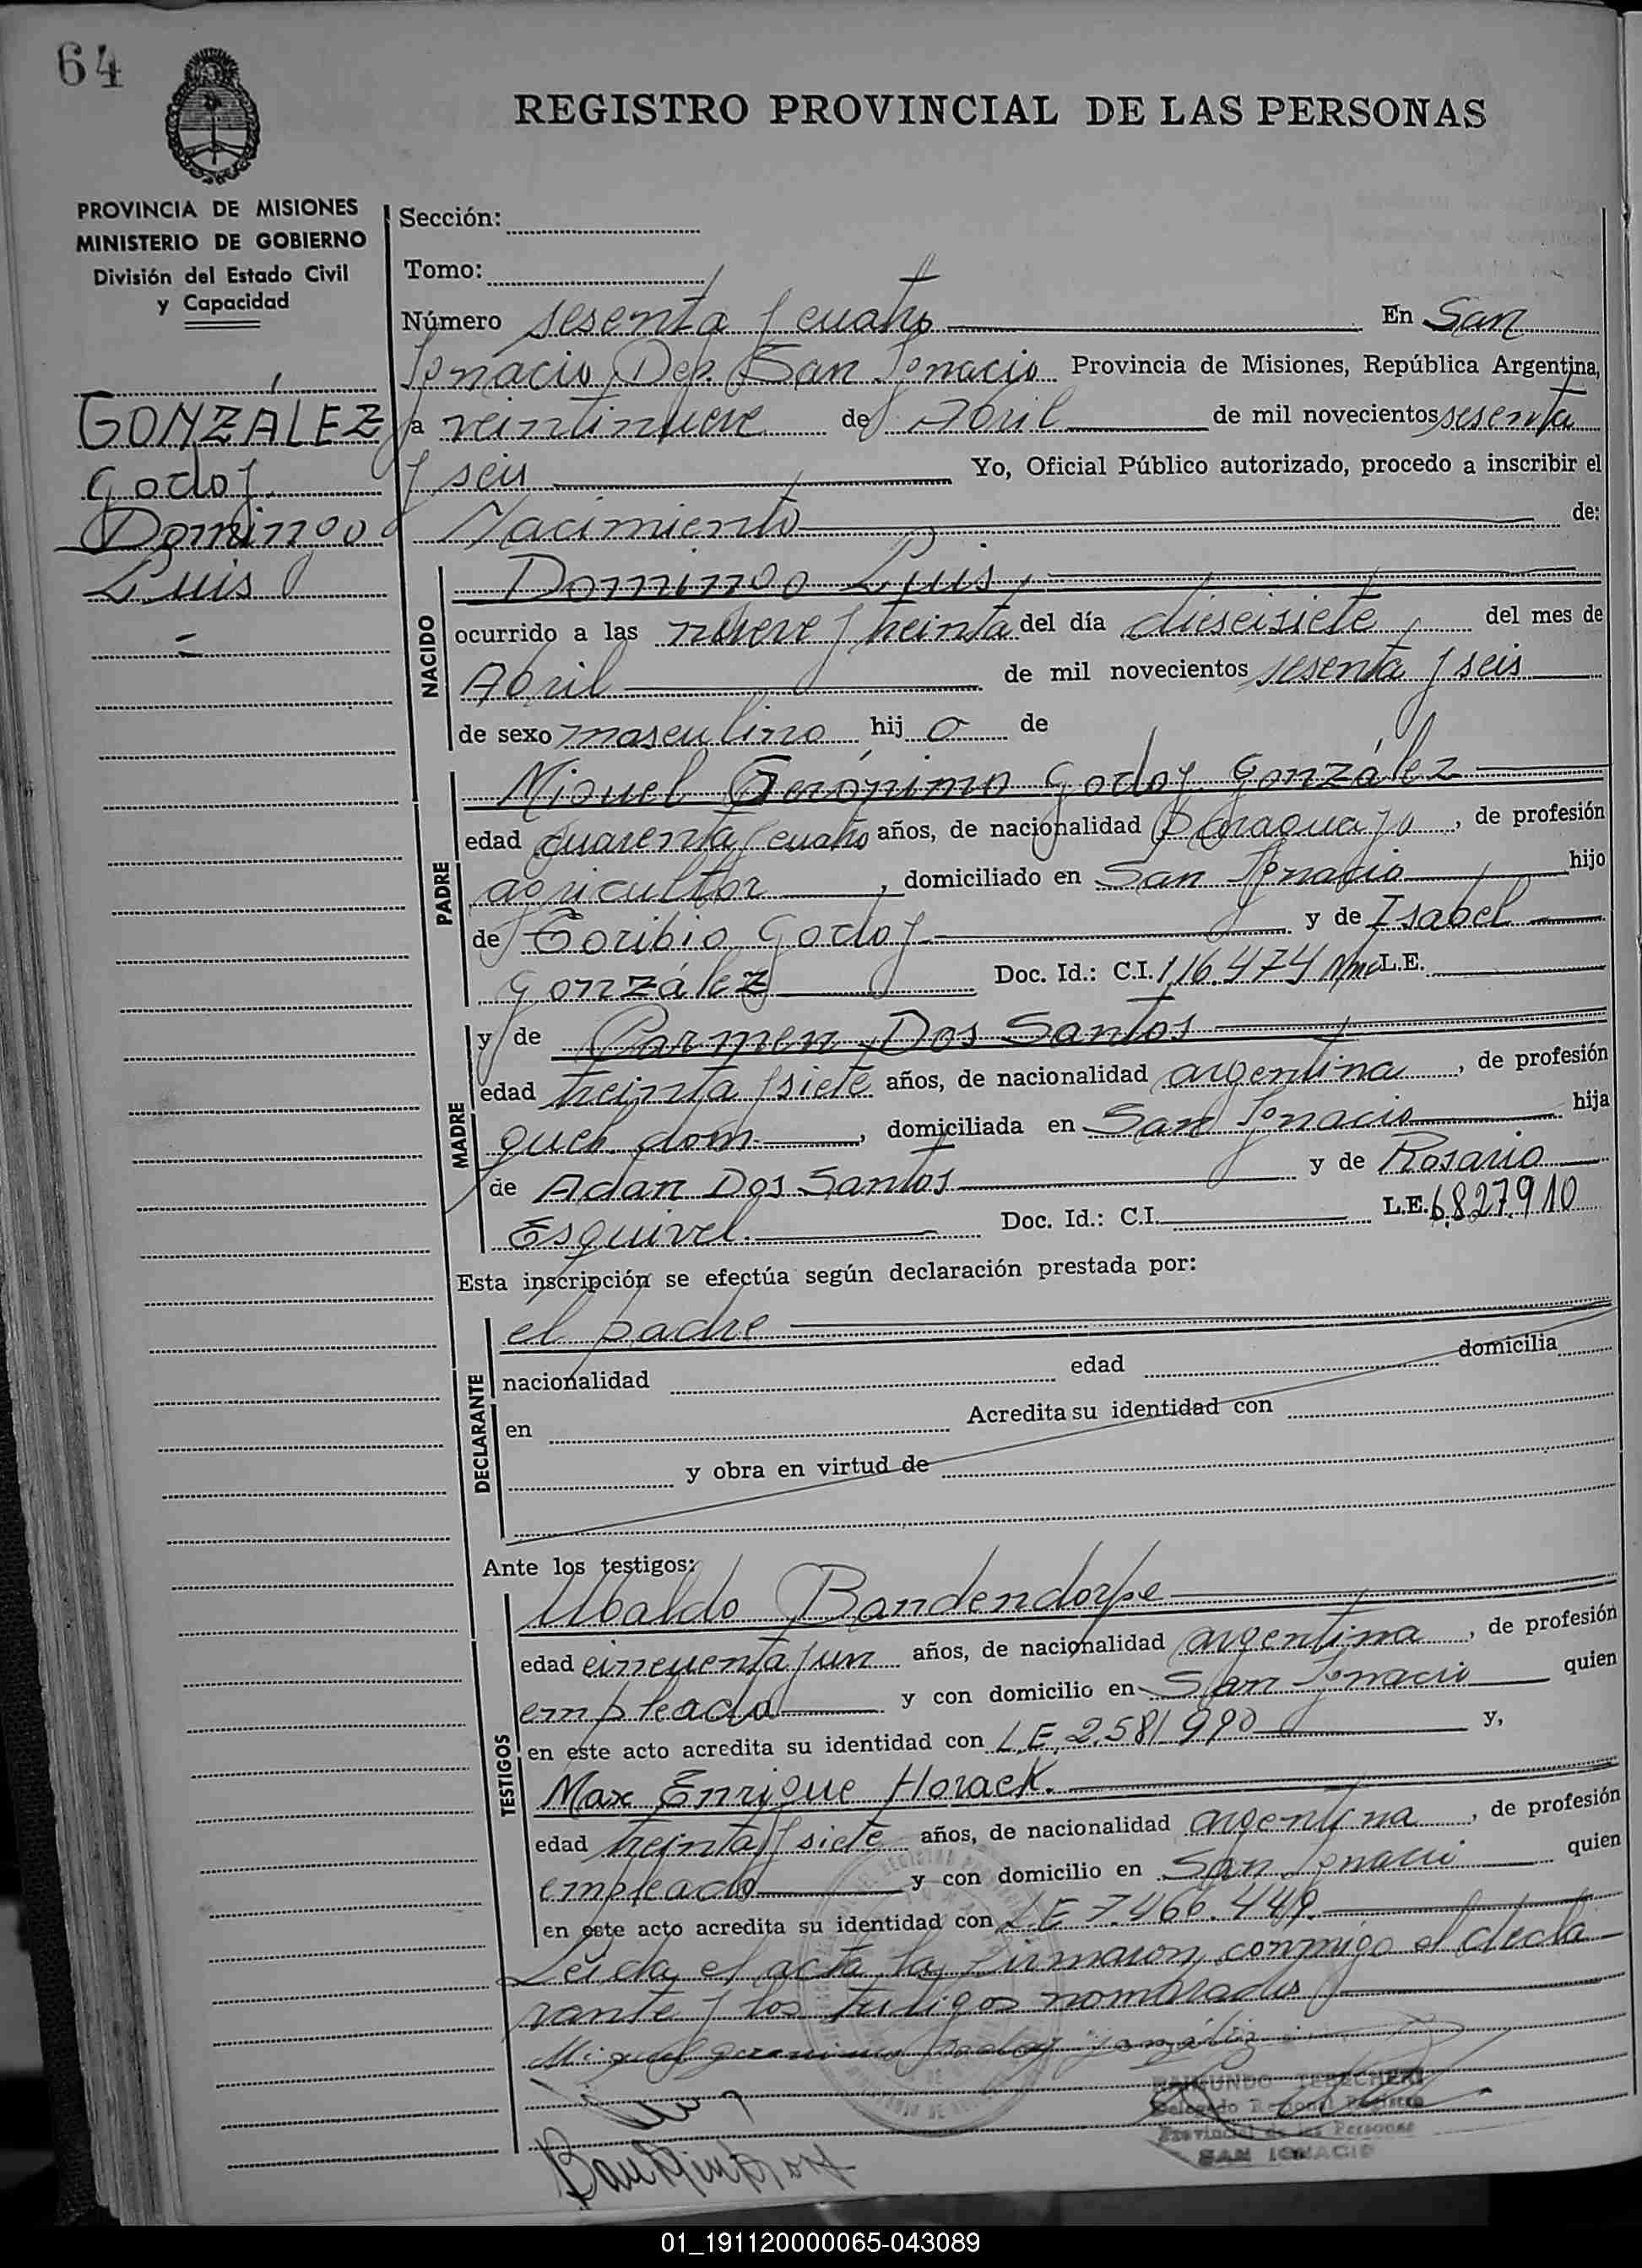 64
REGISTRO PROVINCIAL DE LAS PERSONAS
PROVINCIA DE MISIONES
MINISTERIO DE GOBIERNO
División del Estado Civil
y Capacidad
GONZÁLEZ
Godoy
Domingo
Luis
Sección:
Tomo:
Número sesenta y cuatro En San
Ignacio, Dep. San Ignacio Provincia de Misiones, República Argentina,
a veintinueve de Abril de mil novecientos sesenta
y seis Yo, Oficial Público autorizado, procedo a inscribir el
Nacimiento de:
NACIDO
Domingo Luis,
ocurrido a las nueve y treinta del día dieseisiete, del mes de
Abril de mil novecientos sesenta y seis
de sexo masculino hij o de
PADRE
Miguel Gerónimo Godoy González
edad cuarenta y cuatro años, de nacionalidad paraguayo, de profesión
agricultor, domiciliado en San Ignacio hijo
de Toribio Godoy y de Isabel
González Doc. Id.: C.I. 116.474 Mnes L.E.
MADRE
y de Carmen Dos Santos
edad treinta y siete años, de nacionalidad argentina, de profesión
queh. dom., domiciliada en San Ignacio hija
de Adan Dos Santos y de Rosario
Esquivel. Doc. Id.: C.I. L.E. 6.827.910
Esta inscripción se efectúa según declaración prestada por:
DECLARANTE
el padre
nacionalidad edad domicilia
en Acredita su identidad con
y obra en virtud de
Ante los testigos:
TESTIGOS
Ubaldo Bandendorpe
edad cincuenta y un años, de nacionalidad argentina, de profesión
empleado y con domicilio en San Ignacio quien
en este acto acredita su identidad con L.E. 2.581.990 y,
Max Enrique Horack.
edad treinta y siete años, de nacionalidad argentina, de profesión
empleado y con domicilio en San Ignacio quien
en este acto acredita su identidad con L.E 7.466.449.
Leida el acta, la firmaron conmigo el decla
rante y los testigos nombrados
Miguel geronimo Godoy gonzález
RAIMUNDO
Delegado Regional Registro
Provincial de las Personas
SAN IGNACIO
01_191120000065-043089